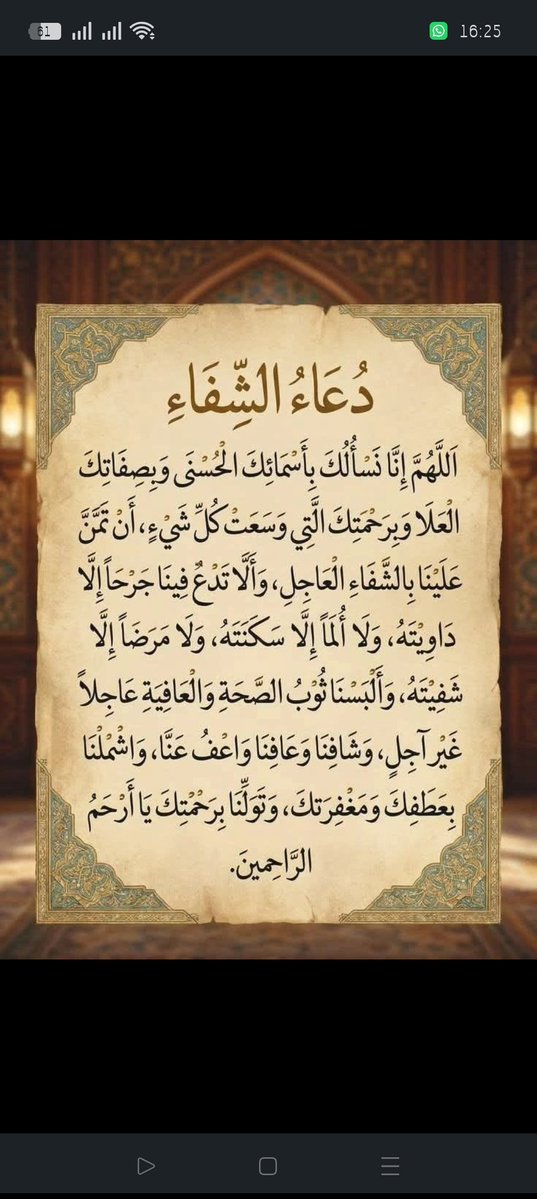 61
16:25
دُعَاءُ الشِّفَاءِ
اَللَّهُمَّ إِنَّا نَسْأَلُكَ بِأَسْمَائِكَ الْحُسْنَى وَبِصِفَاتِكَ
الْعَلَا وَبِرَحْمَتِكَ الَّتِي وَسَعَتْ كُلِّ شَيْءٍ، أَنْ تَمَّنَّ
عَلَيْنَا بِالشَّفَاءِ الْعَاجِلِ، وَأَلَّا تَدْعٌ فِينَا جَرْحَاً إِلَّا
دَاوِيْتَهُ، وَلَا أُلَمَاً إِلَّا سَكَنَتَهُ، وَلَا مَرَضَاً إِلَّا
شَفِيْتَهُ، وَأَلْبَسْنَا ثُوْبُ الصَّحَةِ وَالْعَافِيَةِ عَاجِلاً
غَيْر آجِلٍ، وَشَافِنَا وَعَافِنَا وَاعْفُ عَنَّا، وَاشْمْلْنَا
بِعَطَفِكَ وَمَغْفِرَتكَ، وَتَوَلِّنَا بِرَحْمْتِكَ يَا أَرْحَمُ
الرَّاحِمينَ.